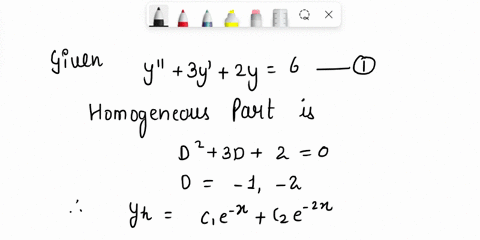 Given y'' + 3y' + 2y = 6 —— ①
Homogeneous Part is
D² + 3D + 2 = 0
D = -1, -2
∴ yh = c₁e⁻ˣ + c₂e⁻²ˣ